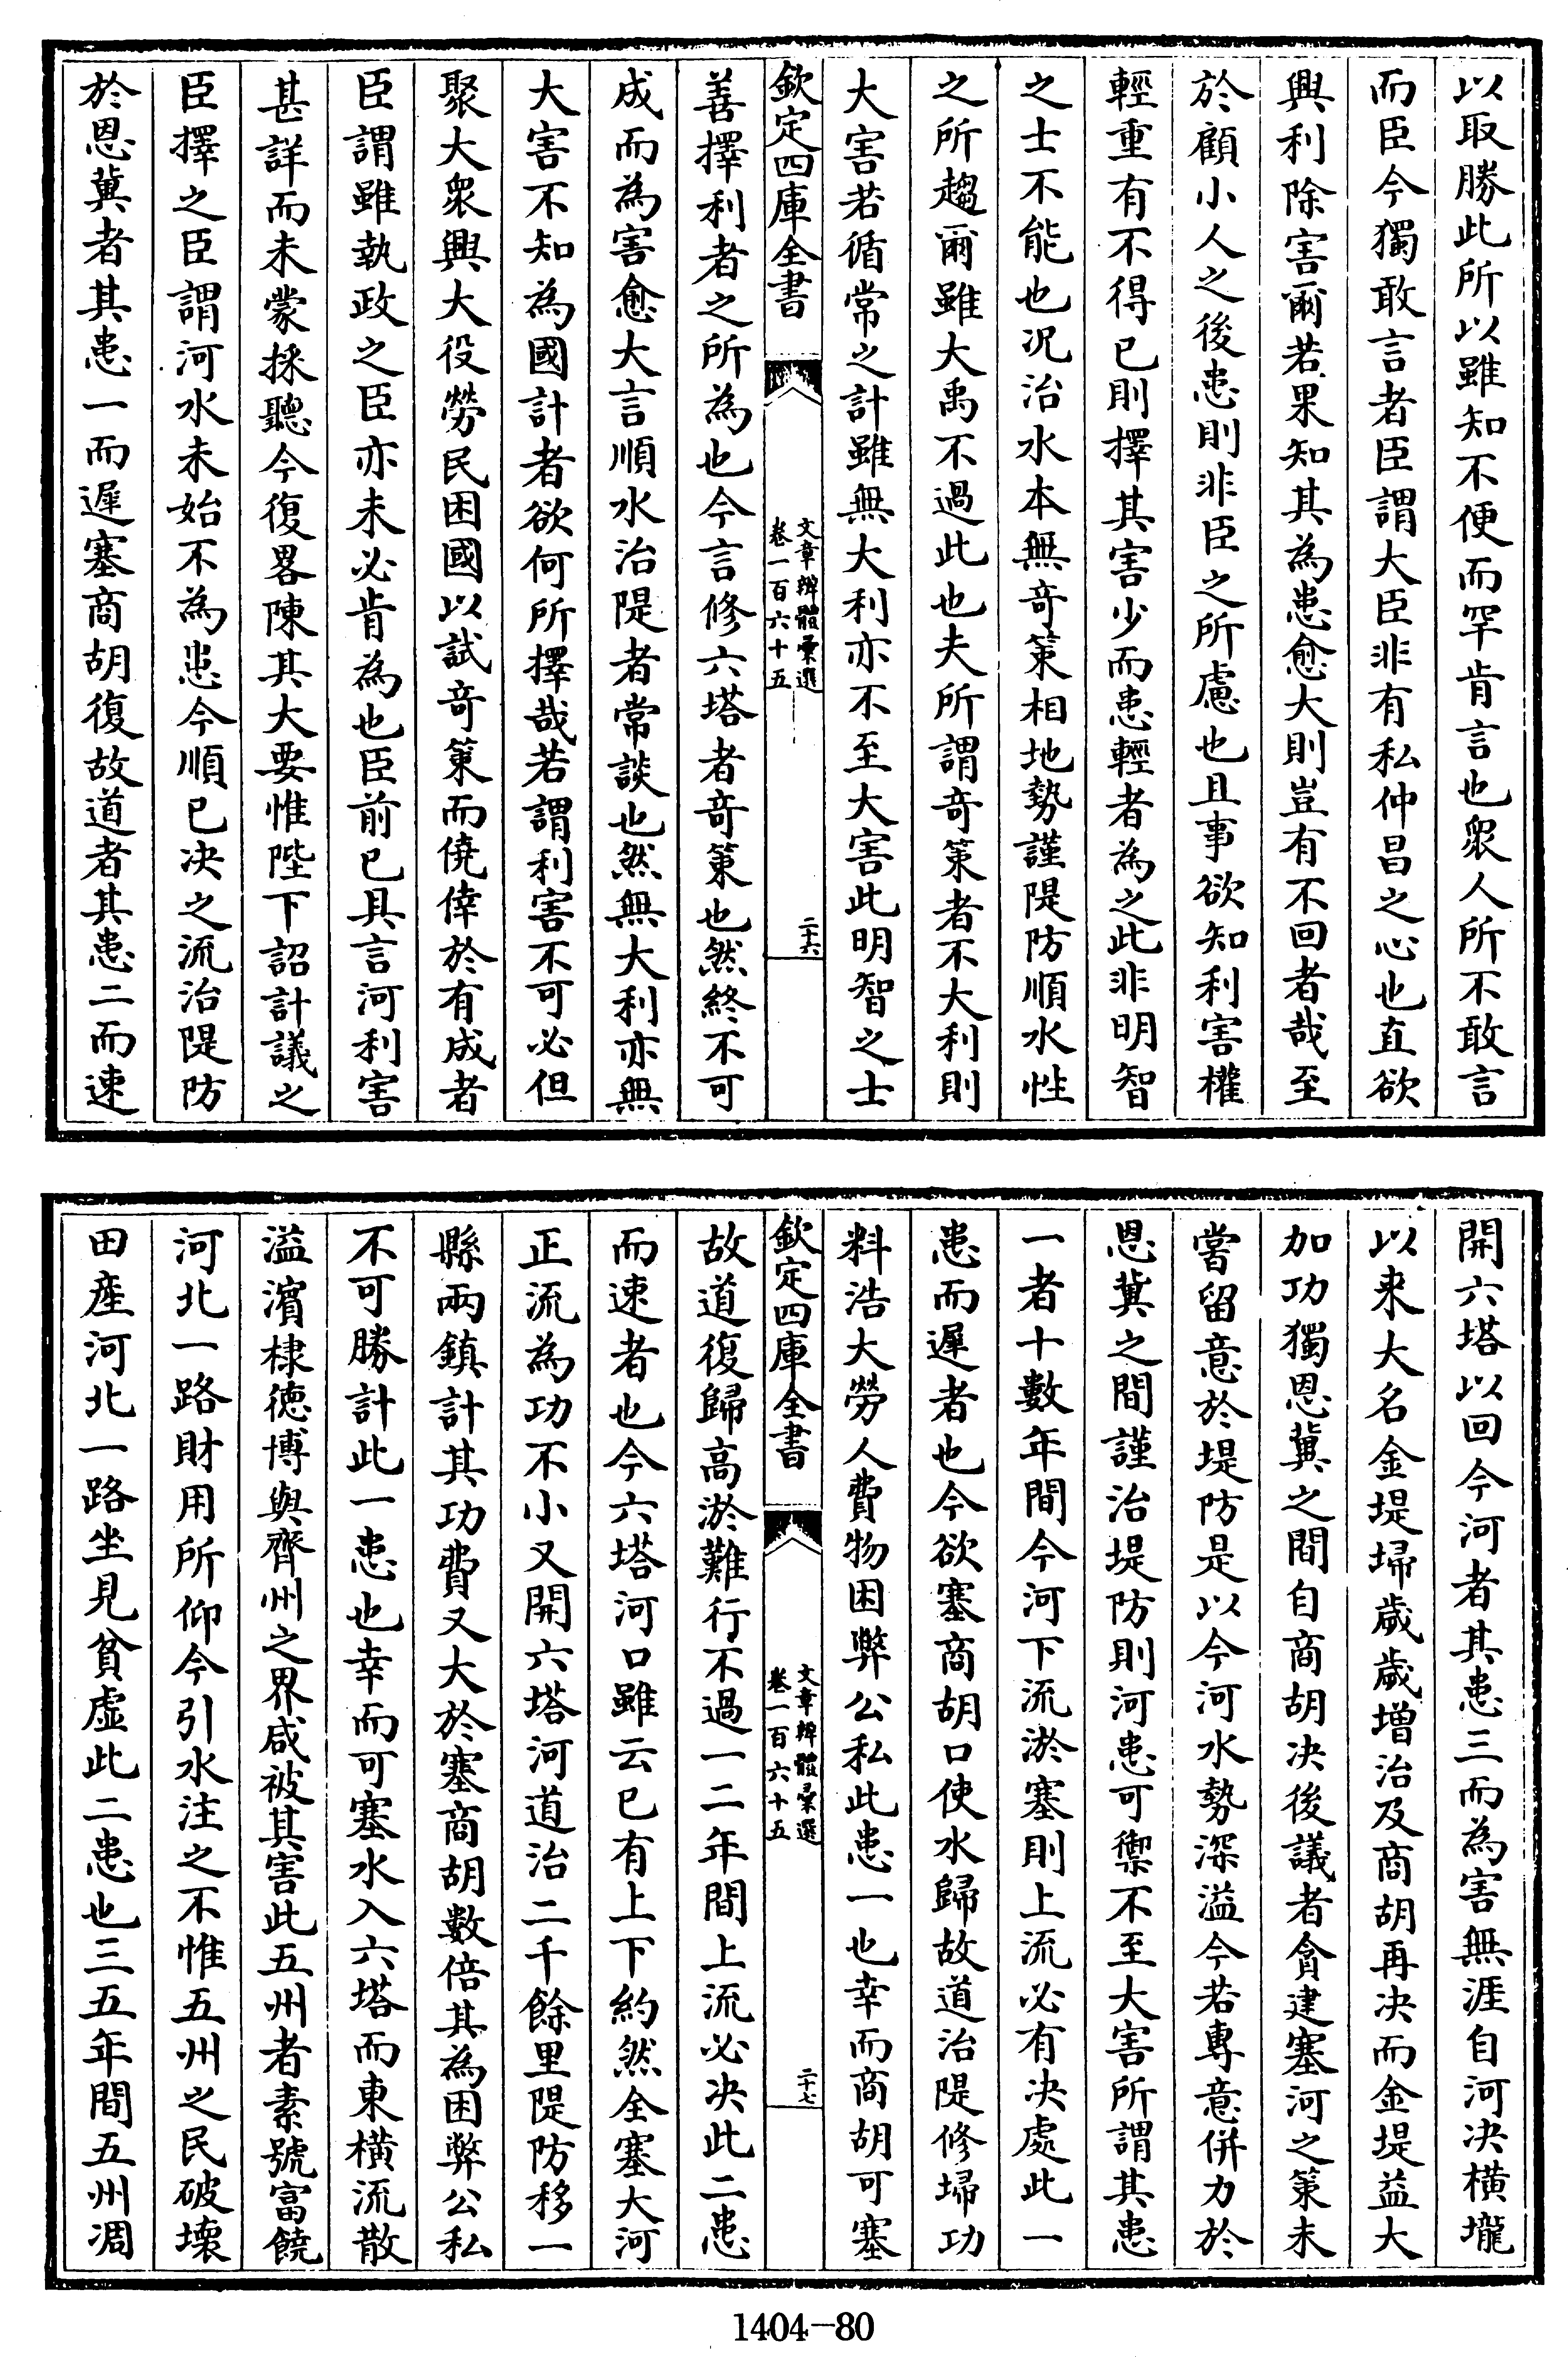 以取勝此所以雖知不便而罕肯言也衆人所不敢言
而臣今獨敢言者臣謂大臣非有私仲昌之心也直欲
興利除害爾若果知其為患愈大則豈有不回者哉至
於顧小人之後患則非臣之所慮也且事欲知利害權
輕重有不得已則擇其害少而患輕者為之此非明智
之士不能也况治水本無奇策相地勢謹隄防順水性
之所趨爾雖大禹不過此也夫所謂奇策者不大利則
大害若循常之計雖無大利亦不至大害此明智之士
欽定四庫全書
文章辨體彙選
卷一百六十五
二十六
善擇利者之所為也今言修六塔者奇策也然終不可
成而為害愈大言順水治隄者常談也然無大利亦無
大害不知為國計者欲何所擇哉若謂利害不可必但
聚大衆興大役勞民困國以試奇策而僥倖於有成者
臣謂雖執政之臣亦未必肯為也臣前已具言河利害
甚詳而未蒙採聽今復畧陳其大要惟陛下詔計議之
臣擇之臣謂河水未始不為患今順已决之流治隄防
於恩冀者其患一而遲塞商胡復故道者其患二而速
開六塔以回今河者其患三而為害無涯自河决横壠
以来大名金堤埽歲歲増治及商胡再决而金堤益大
加功獨恩冀之間自商胡决後議者貪建塞河之策未
嘗留意於堤防是以今河水勢深溢今若專意併力於
恩冀之間謹治堤防則河患可禦不至大害所謂其患
一者十數年間今河下流淤塞則上流必有决處此一
患而遲者也今欲塞商胡口使水歸故道治隄修埽功
料浩大勞人費物困弊公私此患一也幸而商胡可塞
欽定四庫全書
文章辨體彙選
卷一百六十五
二十七
故道復歸高淤難行不過一二年間上流必决此二患
而速者也今六塔河口雖云已有上下約然全塞大河
正流為功不小又開六塔河道治二千餘里隄防移一
縣兩鎮計其功費又大於塞商胡數倍其為困弊公私
不可勝計此一患也幸而可塞水入六塔而東横流散
溢濱棣徳博與齊州之界咸被其害此五州者素號富饒
河北一路財用所仰今引水注之不惟五州之民破壞
田産河北一路坐見貧虚此二患也三五年間五州凋
1404-80